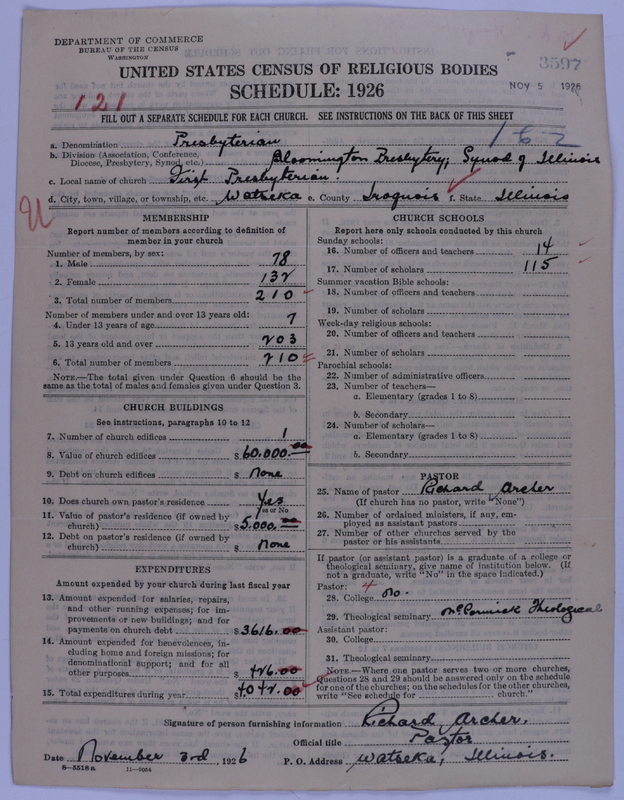 DEPARTMENT OF COMMERCE
BUREAU OF THE CENSUS
WASHINGTON
3597
UNITED STATES CENSUS OF RELIGIOUS BODIES
NOV 5 1926
SCHEDULE: 1926
121
FILL OUT A SEPARATE SCHEDULE FOR EACH CHURCH. SEE INSTRUCTIONS ON THE BACK OF THIS SHEET
162
a. Denomination Presbyterian
b. Division (Association, Conference,
Diocese, Presbytery, Synod, etc.) Bloomington Presbytery; Synod of Illinois
c. Local name of church First Presbyterian.
d. City, town, village, or township, etc. Watseka e. County Iroquois f. State Illinois
U
MEMBERSHIP
Report number of members according to definition of
member in your church
Number of members, by sex:
1. Male 78
2. Female 132
3. Total number of members 210
Number of members under and over 13 years old:
4. Under 13 years of age 7
5. 13 years old and over 203
6. Total number of members 210
NOTE.—The total given under Question 6 should be the
same as the total of males and females given under Question 3.
CHURCH BUILDINGS
See instructions, paragraphs 10 to 12
7. Number of church edifices 1
8. Value of church edifices $60,000.00
9. Debt on church edifices $ None
10. Does church own pastor's residence Yes
Yes or No
11. Value of pastor's residence (if owned by
church) $5,000.00
12. Debt on pastor's residence (if owned by
church) $ None
EXPENDITURES
Amount expended by your church during last fiscal year
13. Amount expended for salaries, repairs,
and other running expenses; for im-
provements or new buildings; and for
payments on church debt $3616.00
14. Amount expended for benevolences, in-
cluding home and foreign missions; for
denominational support; and for all
other purposes $426.00
15. Total expenditures during year $4042.00
CHURCH SCHOOLS
Report here only schools conducted by this church
Sunday schools:
16. Number of officers and teachers 14
17. Number of scholars 115
Summer vacation Bible schools:
18. Number of officers and teachers
19. Number of scholars
Week-day religious schools:
20. Number of officers and teachers
21. Number of scholars
Parochial schools:
22. Number of administrative officers
23. Number of teachers—
a. Elementary (grades 1 to 8)
b. Secondary
24. Number of scholars—
a. Elementary (grades 1 to 8)
b. Secondary
PASTOR
25. Name of pastor Richard Archer
(If church has no pastor, write "None")
26. Number of ordained ministers, if any, em-
ployed as assistant pastors
27. Number of other churches served by the
pastor or his assistants
If pastor (or assistant pastor) is a graduate of a college or
theological seminary, give name of institution below. (If
not a graduate, write "No" in the space indicated.)
Pastor: 4
28. College No.
29. Theological seminary McCormick Theological
Assistant pastor:
30. College
31. Theological seminary
NOTE.—Where one pastor serves two or more churches,
Questions 28 and 29 should be answered only on the schedule
for one of the churches; on the schedules for the other churches,
write "See schedule for church."
Signature of person furnishing information Richard Archer.
Official title Pastor
Date November 3rd, 1926 P. O. Address Watseka, Illinois.
8-5518a 11-9054